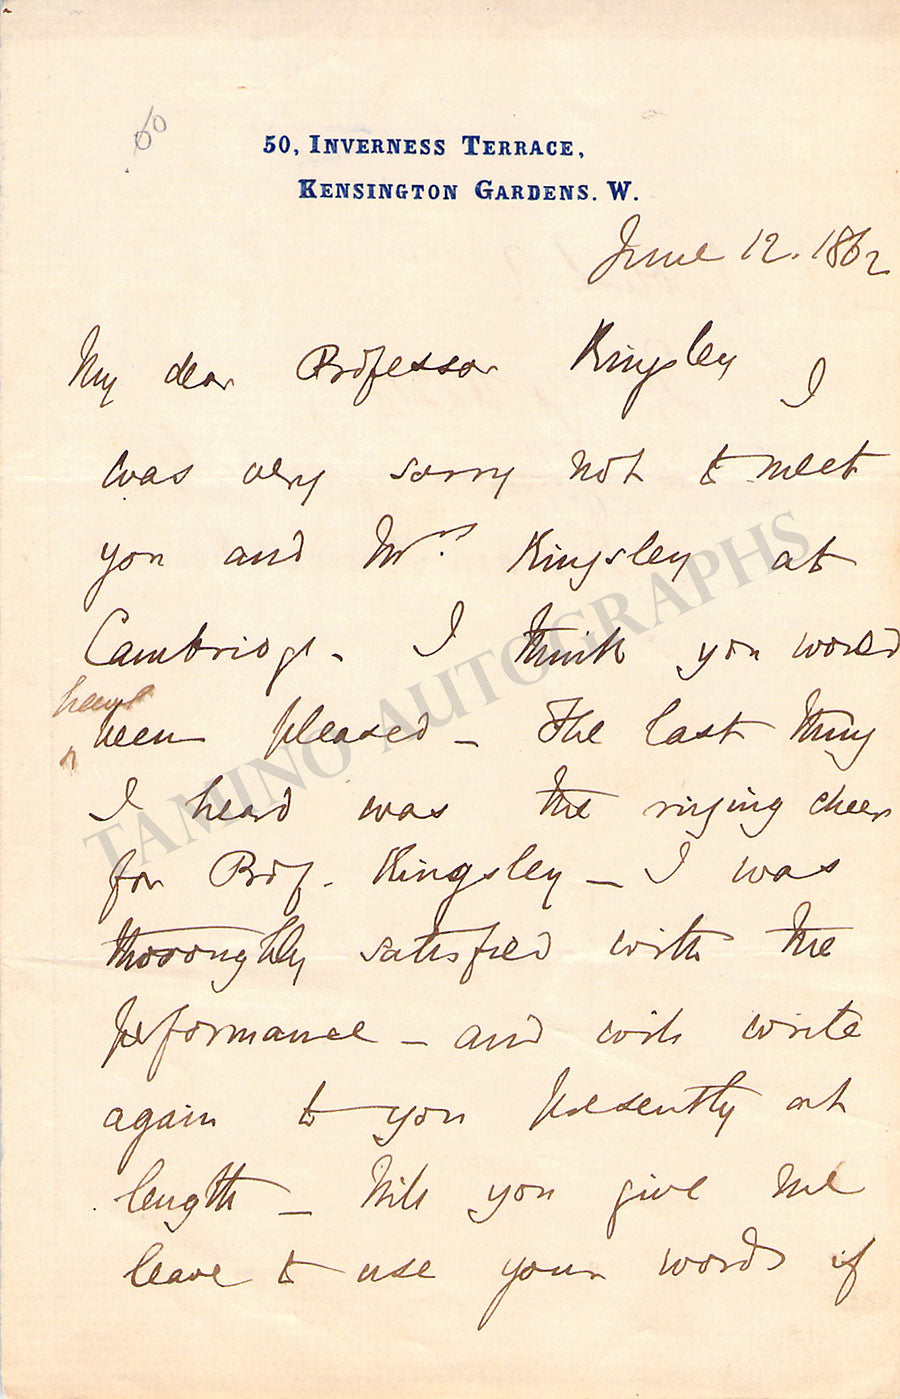 60
50, Inverness Terrace,
Kensington Gardens. W.
June 12. 1862
My dear Professor Kingsley I
was very sorry not to meet
you and Mrs. Kingsley at
Cambridge. I think you would
have
been pleased – The last thing
I heard was the ringing cheer
for Prof. Kingsley – I was
thoroughly satisfied with the
performance – and will write
again to you presently at
length – Will you give me
leave to use your words if
TAMINO AUTOGRAPHS